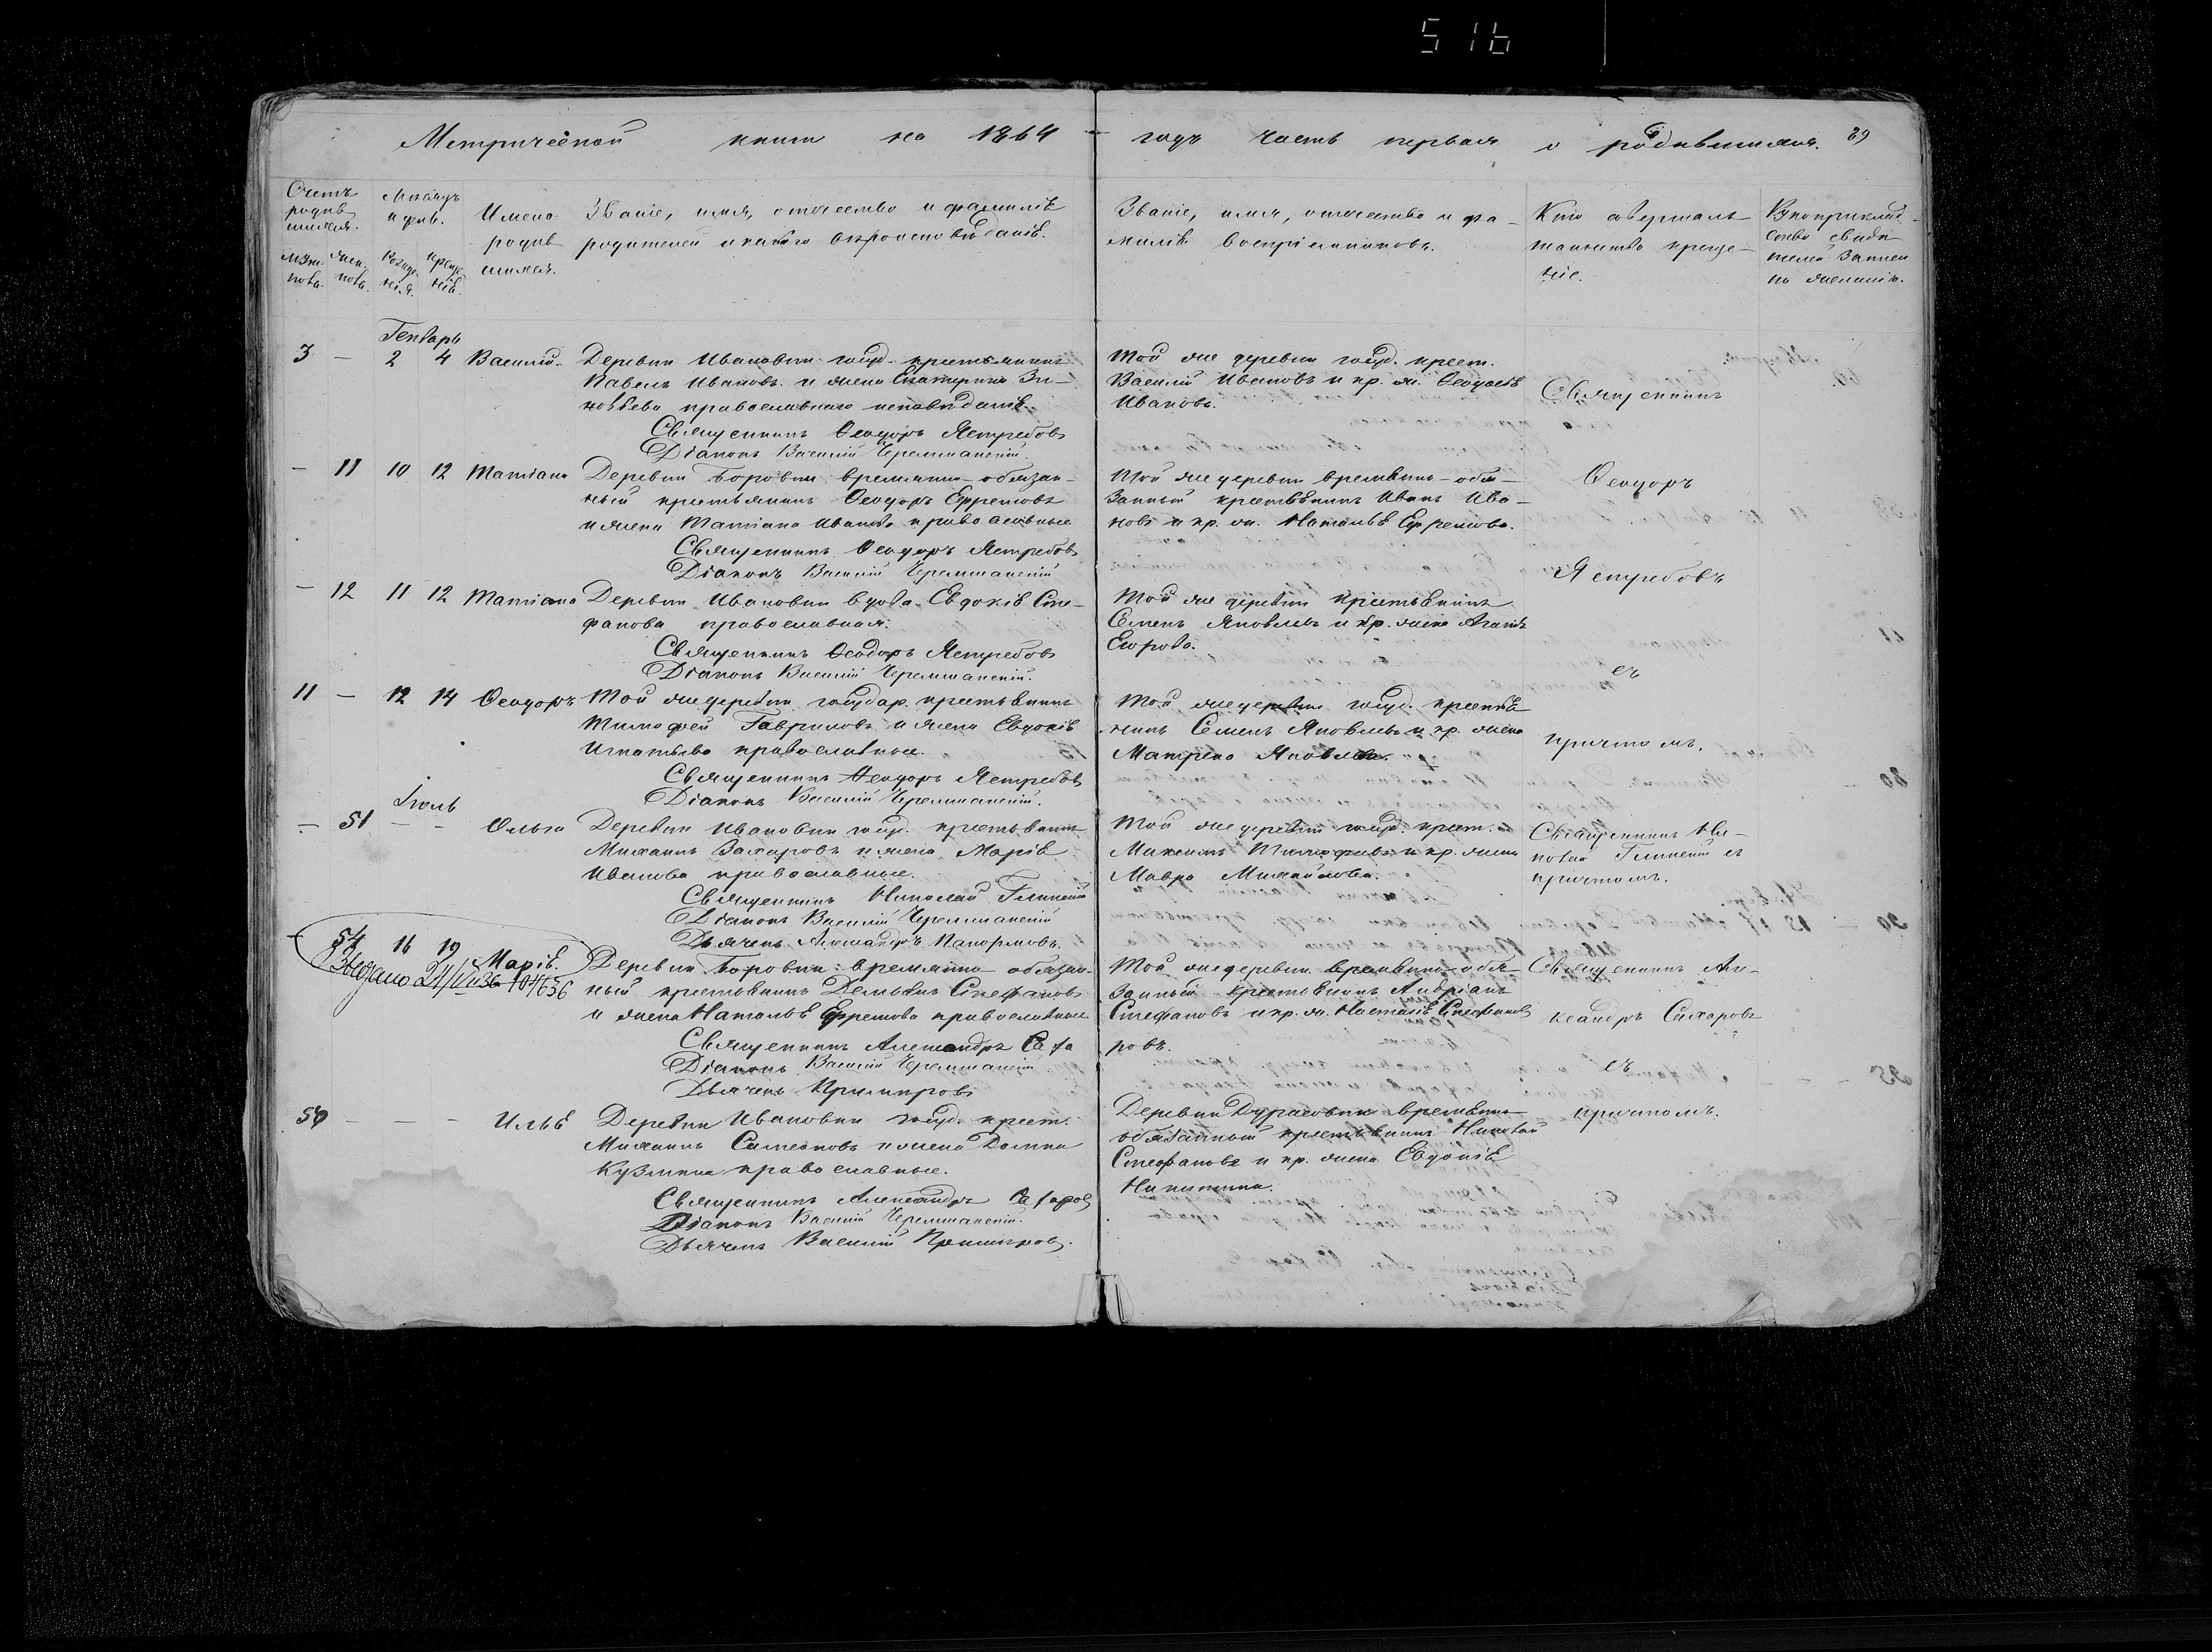 516
Метрической книги на 1864
годъ часть первая о родившихся. 89
Счетъ родившихся.
Мужеска. Женска.
Мѣсяцъ и день.
Рожденія. Крещенія.
Имена родившихся.
Званіе, имя, отчество и фамилія
родителей и какого вѣроисповѣданія.
Званіе, имя, отчество и фа-
милія воспріемниковъ.
Кто совершалъ
таинство креще-
нія.
Рукоприклад-
ство свидѣ-
телей записи
по желанію.
Генварь
3 — 2 4 Василій. Деревни Ивановки госуд. крестьянинъ
Павелъ Ивановъ и жена Екатерина Зи-
новьева православнаго исповѣданія.
Священникъ Ѳеодоръ Ястребовъ
Діаконъ Василій Черемшанскій.
Той же деревни госуд. крест.
Василій Ивановъ и кр. ж. Ѳеодосія
Иванова.
Священникъ
— 11 10 12 Татіана Деревни Боровки временно-обязан-
ный крестьянинъ Ѳеодоръ Ефремовъ
и жена Татіана Иванова православные
Священникъ Ѳеодоръ Ястребовъ
Діаконъ Василій Черемшанскій
Той же деревни временно-обя-
занный крестьянинъ Иванъ Ива-
новъ и кр. ж. Наталья Ефремова.
Ѳеодоръ
— 12 11 12 Татіана Деревни Ивановки вдова Евдокія Сте-
фанова православная.
Священникъ Ѳеодоръ Ястребовъ
Діаконъ Василій Черемшанскій.
Той же деревни крестьянинъ
Семенъ Яковлевъ и кр. жена Агапія
Егорова.
Ястребовъ
съ
11 — 12 14 Ѳеодоръ Той же деревни государ. крестьянинъ
Тимофей Гавриловъ и жена Евдокія
Игнатьева православные.
Священникъ Ѳеодоръ Ястребовъ
Діаконъ Василій Черемшанскій.
Той же деревни госуд. крестья-
нинъ Семенъ Яковлевъ и кр. жена
Матрена Яковлева.
причтомъ.
Іюль
— 51 — — Ольга Деревни Ивановки госуд. крестьянинъ
Михаилъ Захаровъ и жена Марія
Иванова православные.
Священникъ Николай Глинскій
Діаконъ Василій Черемшанскій
Дьячекъ Александръ Панормовъ.
Той же деревни госуд. крест.
Максимъ Тимофеевъ и кр. жена
Мавра Михайлова.
Священникъ Ни-
колай Глинскій съ
причтомъ.
— 54 16 19 Марія.
Выдано 24/VII36
Деревни Боровки временно обязан-
ный крестьянинъ Стефановъ
и жена Наталья Ефремова православные
Священникъ Александръ Саха
Діаконъ Василій Черемшанскій
Дьячекъ Примировъ
Той же деревни временно-обя-
занный крестьянинъ Андріанъ
Стефановъ и кр. ж. Стефанова
ровъ.
Священникъ Але-
ксандръ Сахаровъ
съ
причтомъ.
— — — Илья Деревни Ивановки госуд. крест.
Михаилъ Симеоновъ и жена Домна
Кузмина православные.
Священникъ Александръ Сахаровъ
Діаконъ Василій Черемшанскій.
Дьячекъ Василій Примировъ.
Деревни Дурасовки временно-
обязанный крестьянинъ Николай
Стефановъ и кр. жена Евдокія
Никитина.